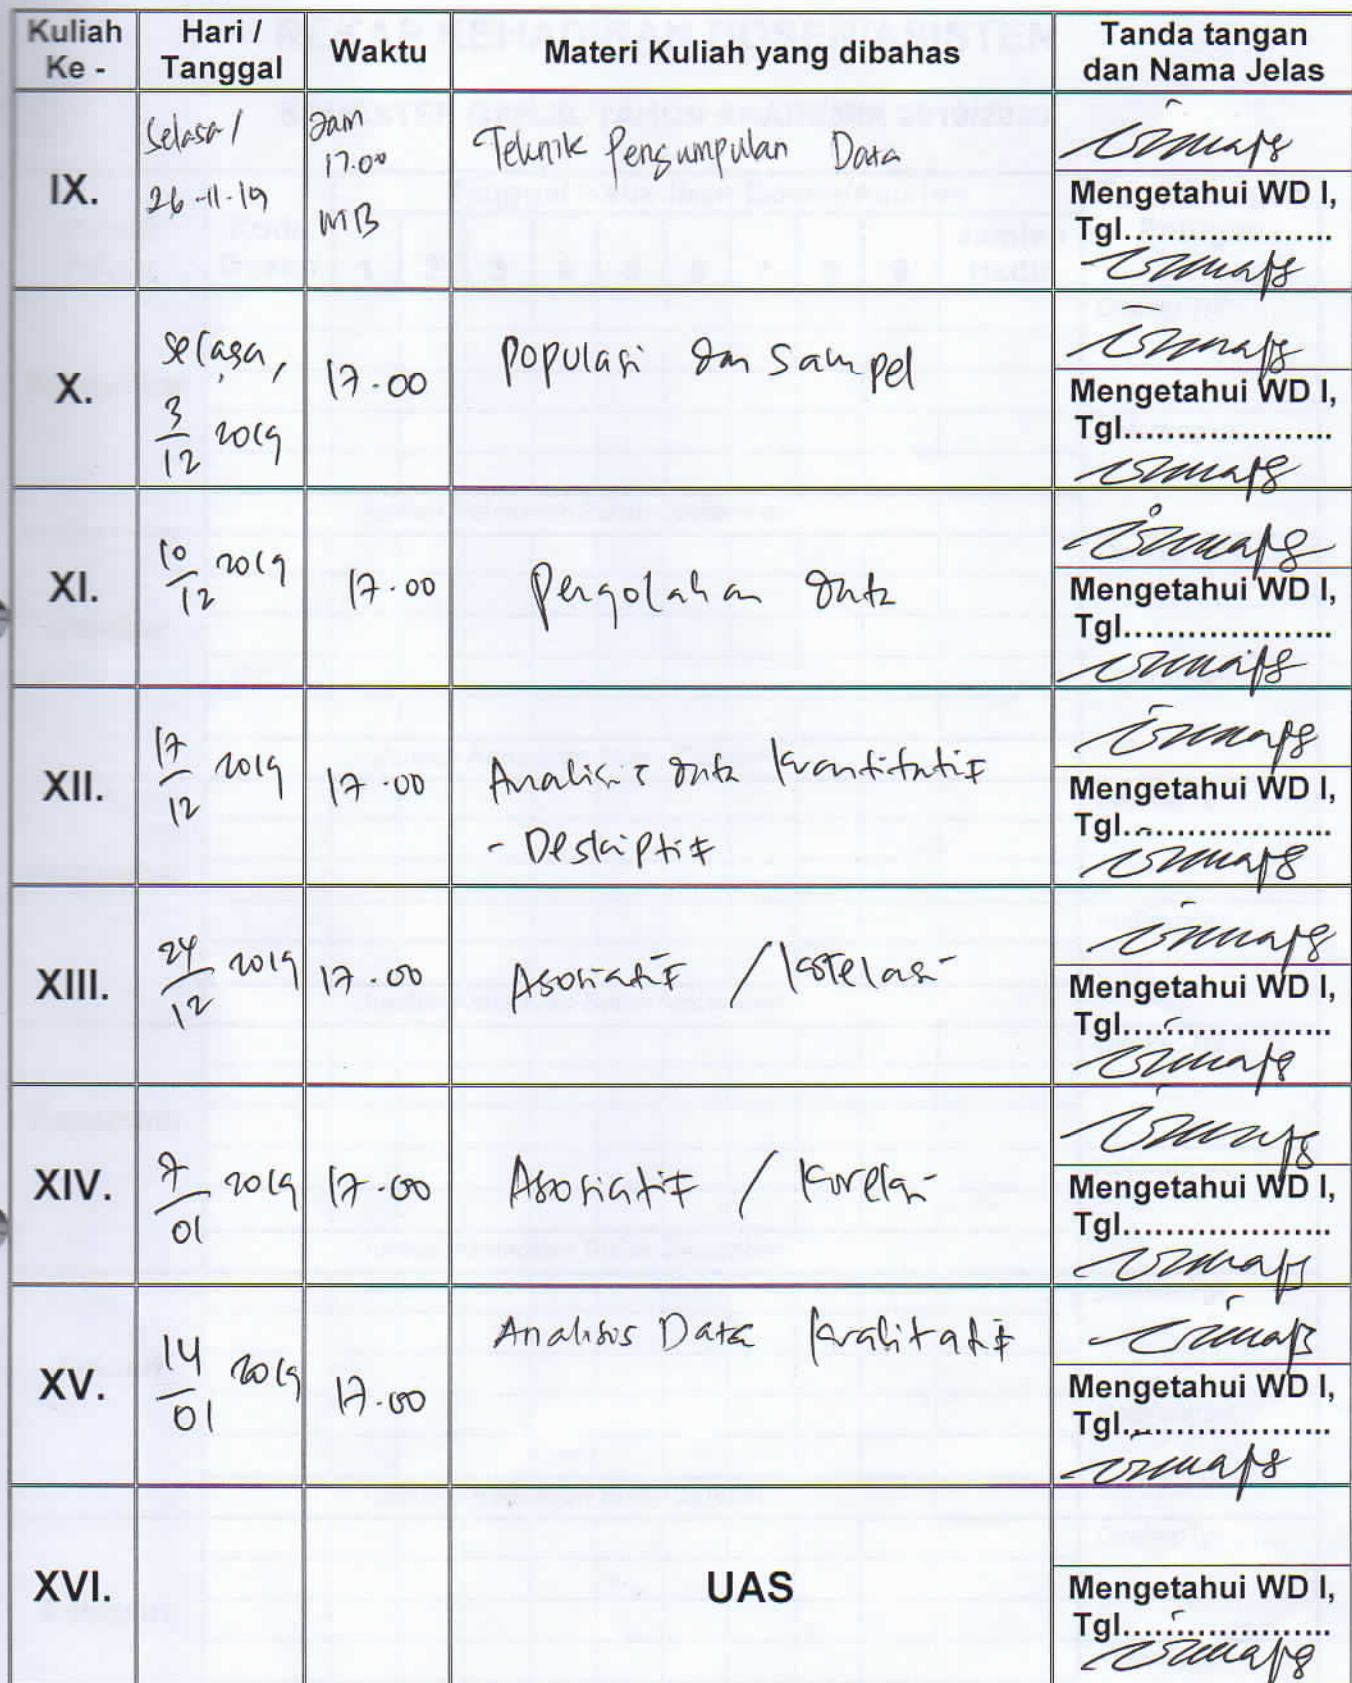 Kuliah Ke -
Hari / Tanggal
Waktu
Materi Kuliah yang dibahas
Tanda tangan dan Nama Jelas
IX.
Selasa / 26-11-19
Jam 17.00 WIB
Teknik Pengumpulan Data
Mengetahui WD I,
Tgl....................
X.
Selasa, 3/12 2019
17.00
Populasi dan Sampel
Mengetahui WD I,
Tgl....................
XI.
10/12 2019
17.00
Pengolahan data
Mengetahui WD I,
Tgl....................
XII.
17/12 2019
17.00
Analisis data kuantitatif
- Deskriptif
Mengetahui WD I,
Tgl....................
XIII.
24/12 2019
17.00
Asosiatif / korelasi
Mengetahui WD I,
Tgl....................
XIV.
7/01 2019
17.00
Asosiatif / korelasi
Mengetahui WD I,
Tgl....................
XV.
14/01 2019
17.00
Analisis Data kualitatif
Mengetahui WD I,
Tgl....................
XVI.
UAS
Mengetahui WD I,
Tgl....................